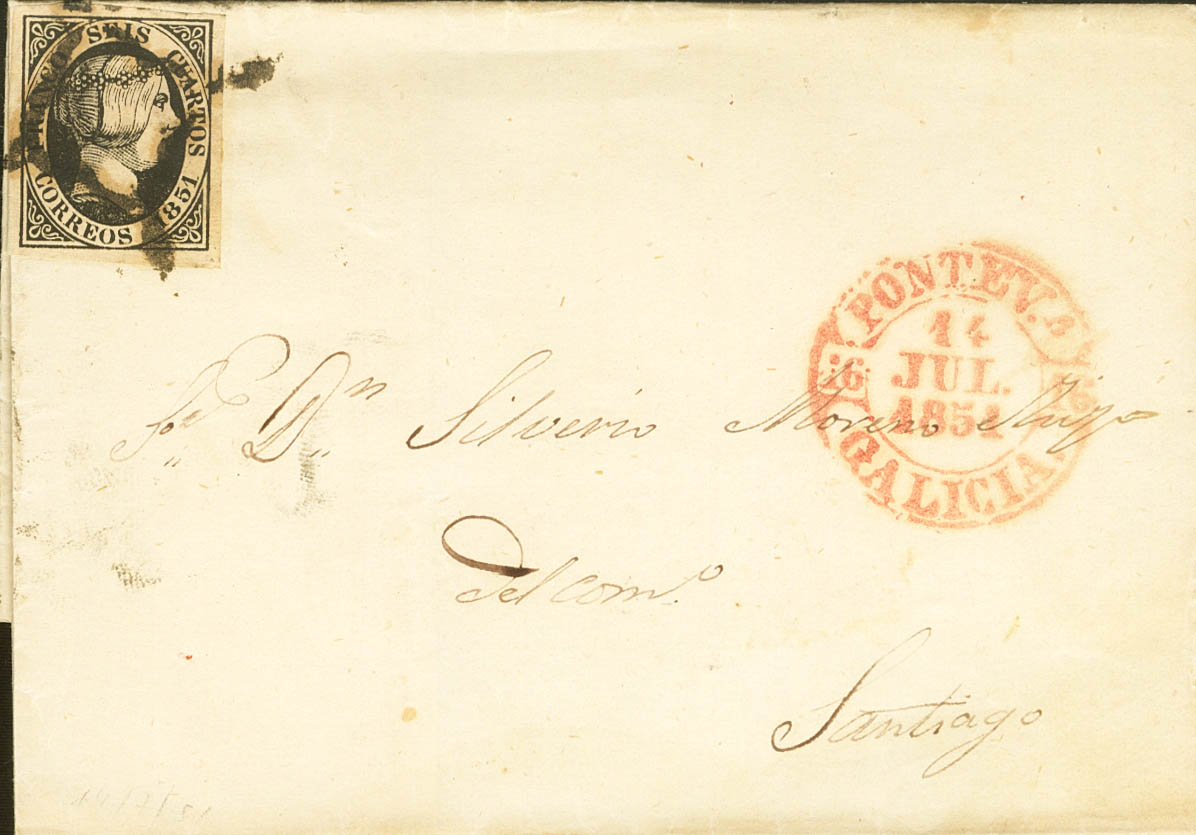 FRANCO SEIS CUARTOS
CORREOS 1851
PONTEV.ª
14
JUL.
1851
16. 16
GALICIA
Sr. Dn Silverio Moreno
Del com.º
Santiago
14/7/51